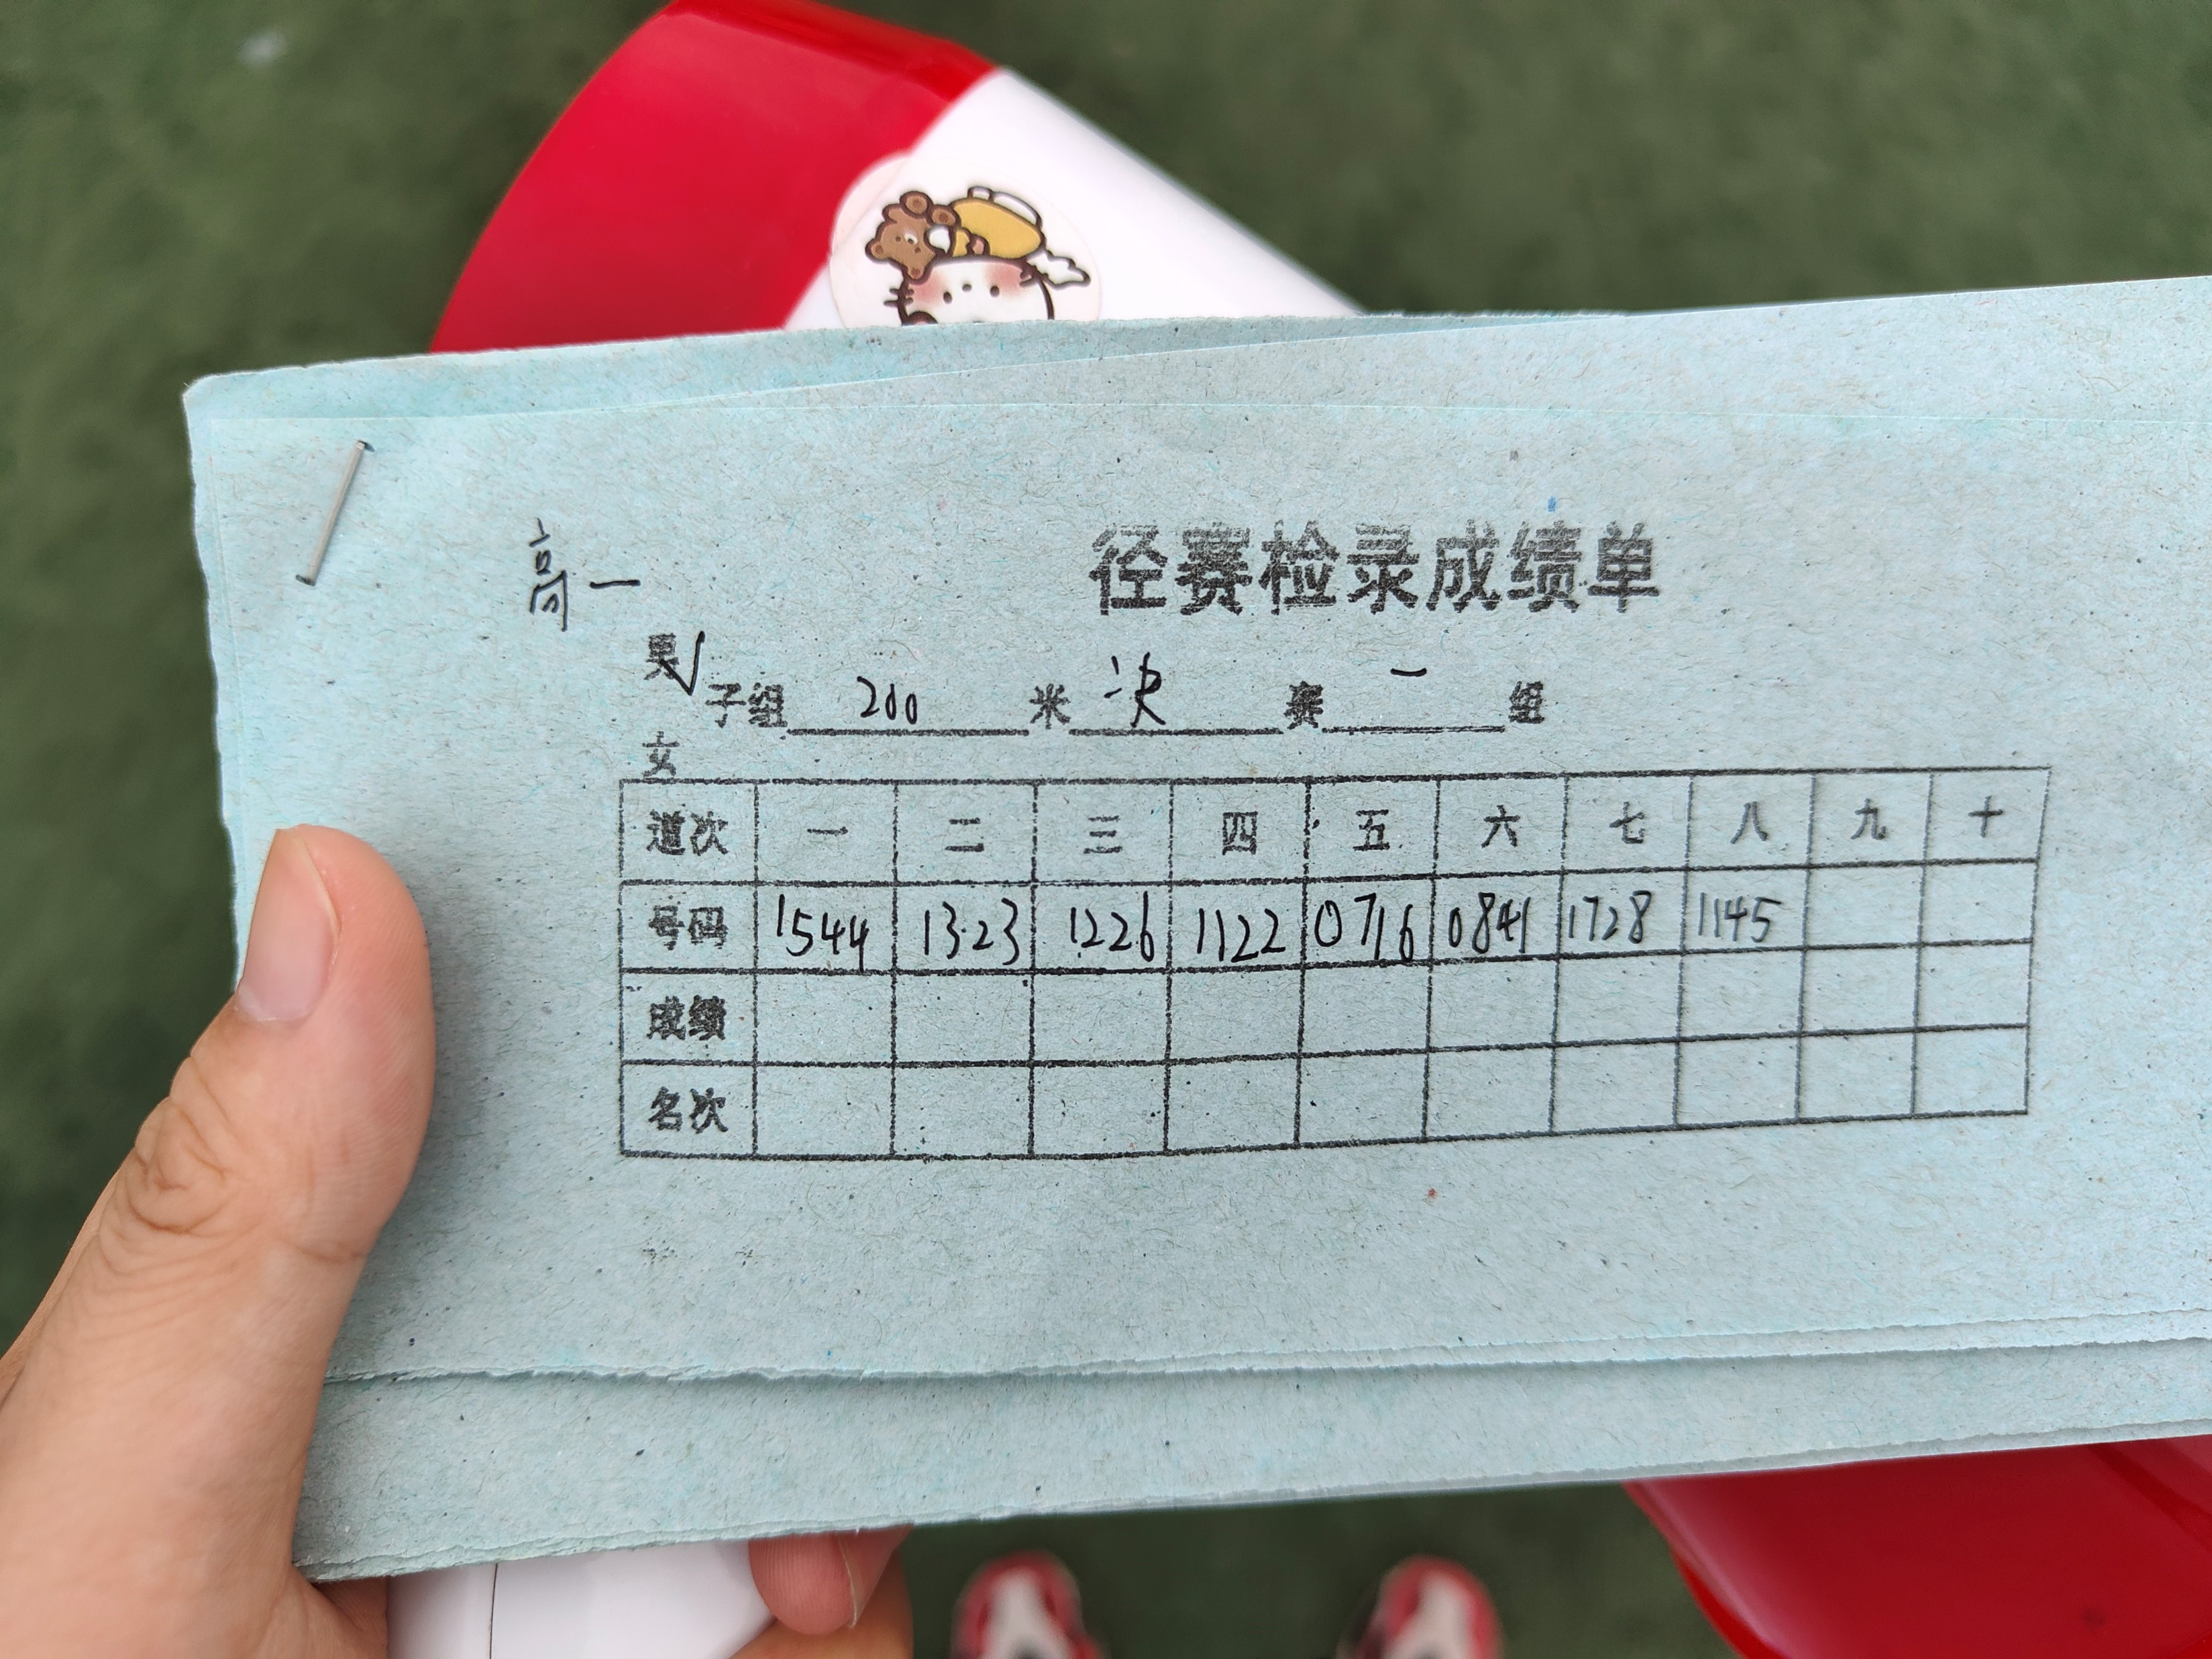 径赛检录成绩单
高一
男√
子组 200 米 决 赛 一 组
女
道次 一 二 三 四 五 六 七 八 九 十
号码 1544 1323 1226 1122 0716 0841 1728 1145
成绩
名次